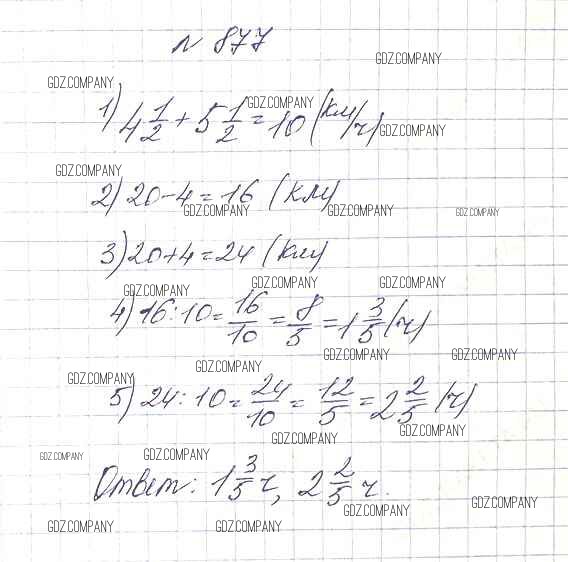 № 877
GDZ.COMPANY
GDZ.COMPANY
GDZ.COMPANY
1) 4 1/2 + 5 1/2 = 10 (км/ч)
GDZ.COMPANY
GDZ.COMPANY
2) 20-4=16 (км)
GDZ.COMPANY GDZ.COMPANY GDZ.COMPANY
3) 20+4=24 (км)
GDZ.COMPANY GDZ.COMPANY GDZ.COMPANY
4) 16:10= 16/10 = 8/5 = 1 3/5 (ч)
GDZ.COMPANY GDZ.COMPANY
GDZ.COMPANY GDZ.COMPANY
5) 24:10= 24/10 = 12/5 = 2 2/5 (ч)
GDZ.COMPANY
GDZ.COMPANY
GDZ.COMPANY GDZ.COMPANY
Ответ: 1 3/5 ч, 2 2/5 ч.
GDZ.COMPANY GDZ.COMPANY
GDZ.COMPANY GDZ.COMPANY